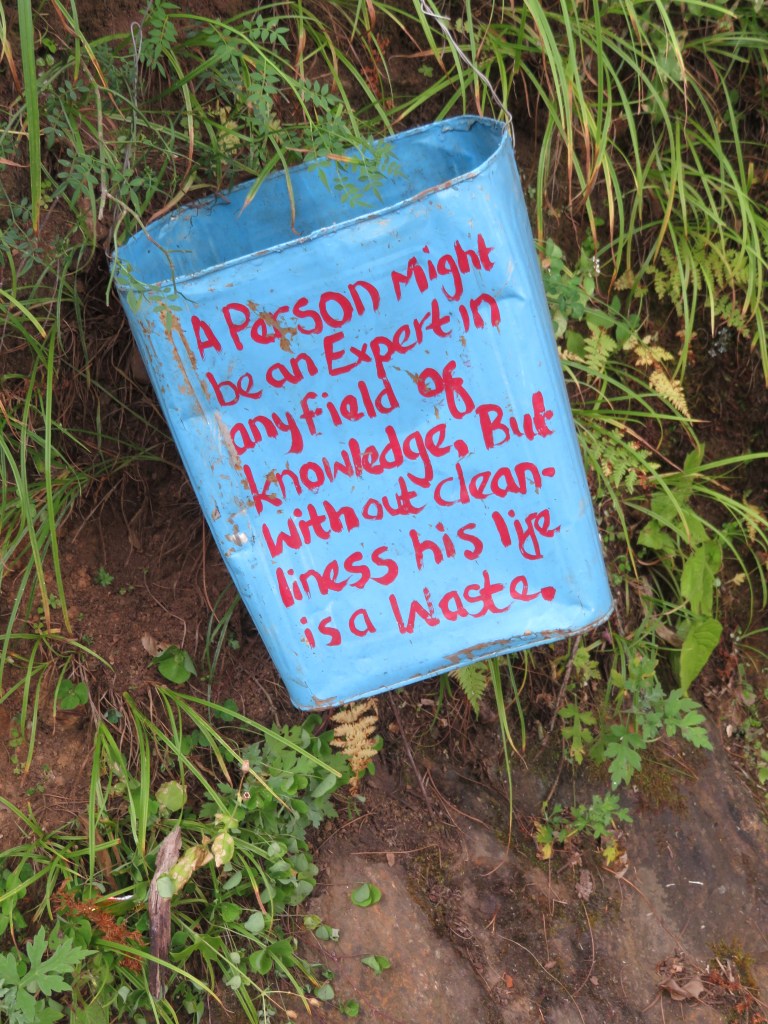 A Person Might
be an Expert in
any field of
knowledge, But
Without clean-
liness his life
is a Waste.